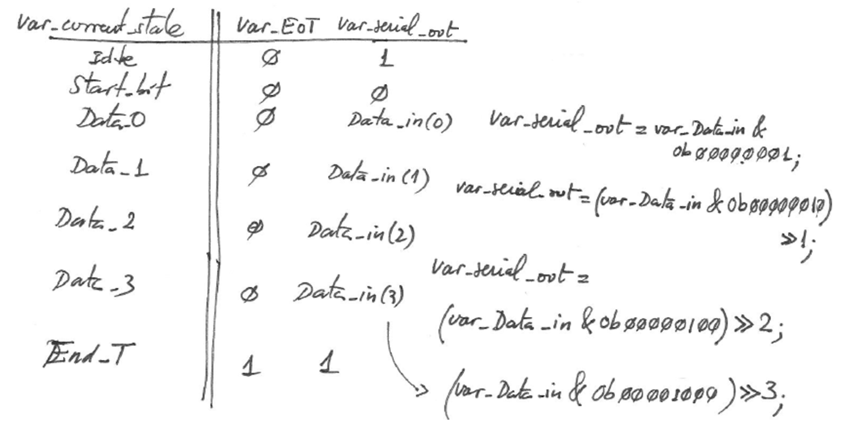 Var_current_state Var_EoT Var_serial_out
Idle Ø 1
Start_bit Ø Ø
Data_0 Ø Data_in(0) Var_serial_out = var_Data_in &
0bØØØØØØØ1;
Data_1 Ø Data_in(1) var_serial_out = (var_Data_in & 0bØØØØØØ1Ø)
≫1;
Data_2 Ø Data_in(2)
Var_serial_out =
Data_3 Ø Data_in(3)
(var_Data_in & 0bØØØØØ1ØØ)≫2;
End_T 1 1
(var_Data_in & 0bØØØØ1ØØØ)≫3;